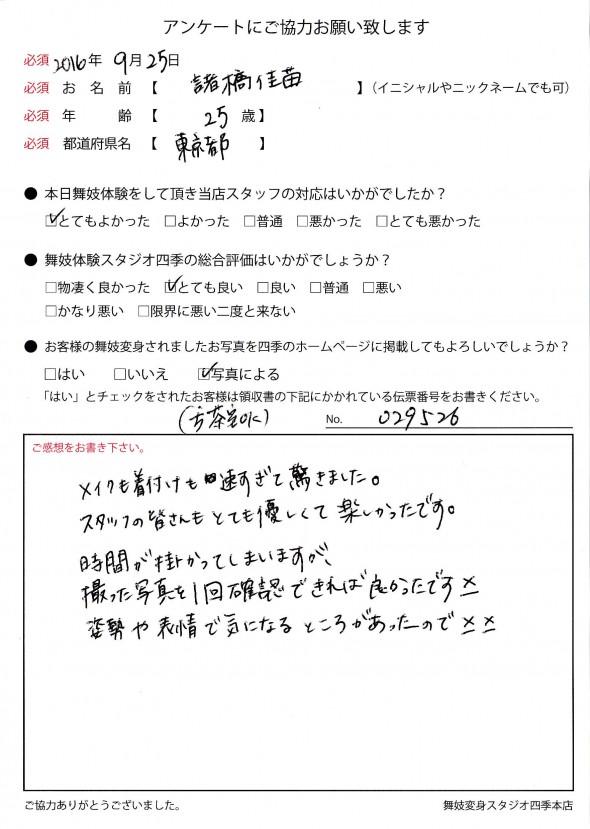 アンケートにご協力お願い致します
必須 2016年 9月25日
必須 お 名 前 【 諸橋佳苗 】（イニシャルやニックネームでも可）
必須 年 齢 【 25 歳】
必須 都道府県名 【 東京都 】
● 本日舞妓体験をして頂き当店スタッフの対応はいかがでしたか？
☑とてもよかった □よかった □普通 □悪かった □とても悪かった
● 舞妓体験スタジオ四季の総合評価はいかがでしょうか？
□物凄く良かった ☑とても良い □良い □普通 □悪い
□かなり悪い □限界に悪い二度と来ない
● お客様の舞妓変身されましたお写真を四季のホームページに掲載してもよろしいでしょうか？
□はい □いいえ ☑写真による
「はい」とチェックをされたお客様は領収書の下記にかかれている伝票番号をお書きください。
茶室OK)
No. 029526
ご感想をお書き下さい。
メイクも着付けも速すぎて驚きました。
スタッフの皆さんもとても優しくて楽しかったです。
時間が掛かってしまいますが、
撮った写真を1回確認できれば良かったです
姿勢や表情で気になるところがあったので
ご協力ありがとうございました。
舞妓変身スタジオ四季本店